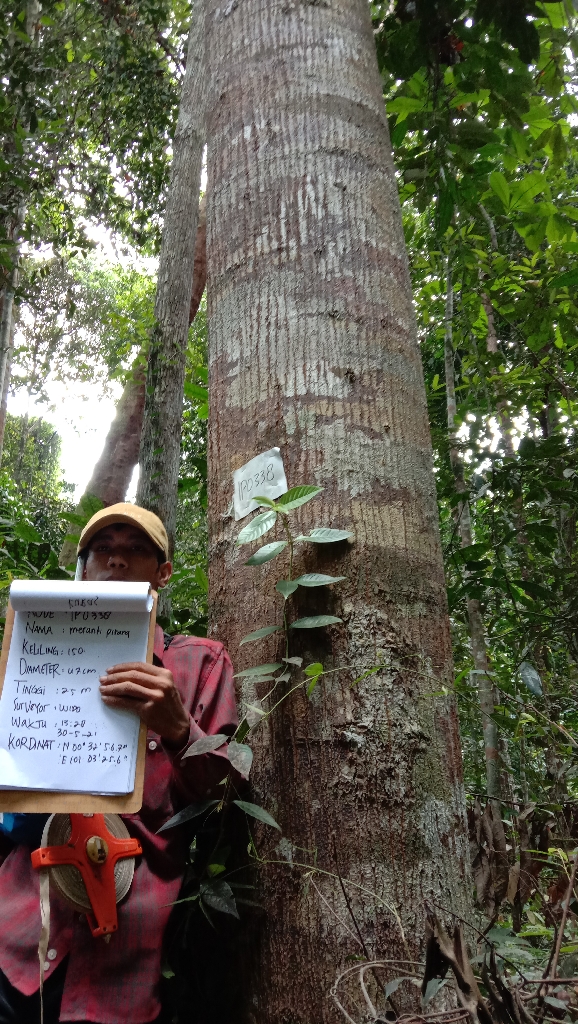 IP0338
KODE : IP0338
NAMA : meranti pirang
KELILING : 150
DIAMETER : 47 cm
TINGGI : 25 m
SURVEYOR : WIDO
WAKTU : 13:20
30-5-21
KORDINAT : N 00° 32' 56.7"
E 101 03' 25.6"